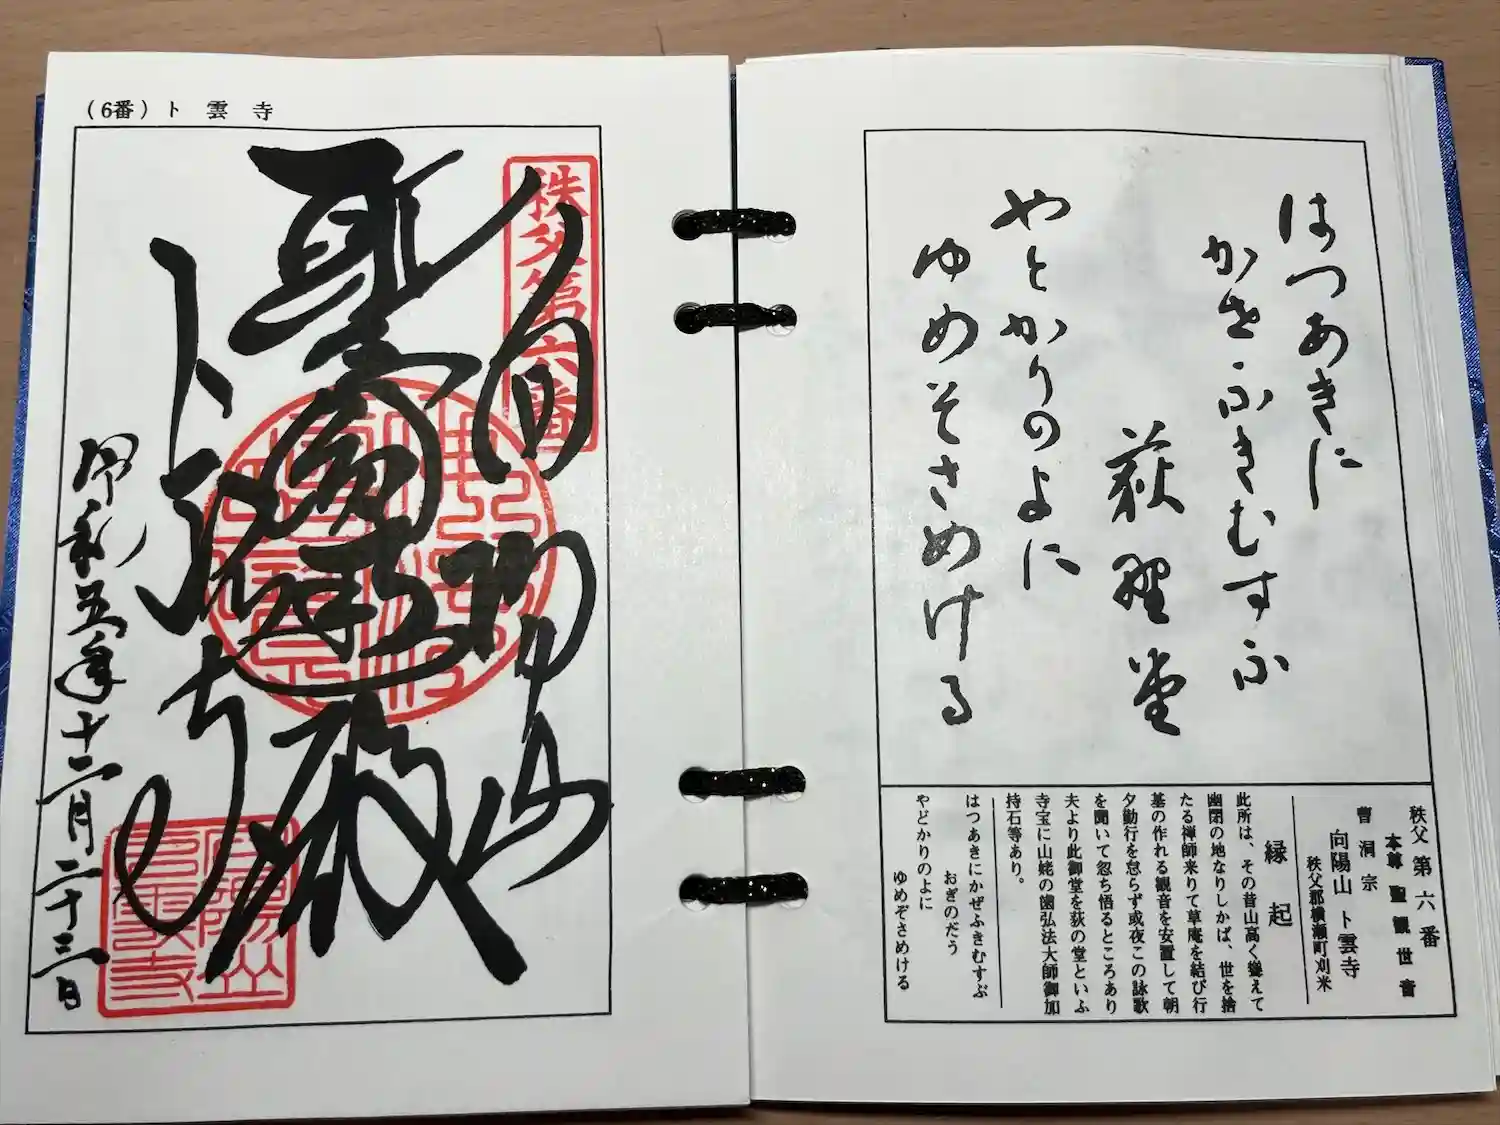 (6番) ト雲寺
秩父第六番
向陽山
聖大士殿
ト雲寺
令和五年十二月二十三日
はつあきに
かせふきむすふ
荻野堂
やとかりのよに
ゆめそさめける
秩父第六番
本尊 聖観世音
曹洞宗
向陽山 ト雲寺
秩父郡横瀬町刈米
縁起
此所は、その昔山高く聳えて
幽閉の地なりしかば、世を捨
たる禅師来りて草庵を結び行
基の作れる観音を安置して朝
夕勤行を怠らず或夜この詠歌
を聞いて忽ち悟るところあり
夫より此御堂を荻の堂といふ
寺宝に山姥の歯弘法大師御加
持石等あり。
はつあきにかぜふきむすぶ
おぎのだう
やどかりのよに
ゆめぞさめける